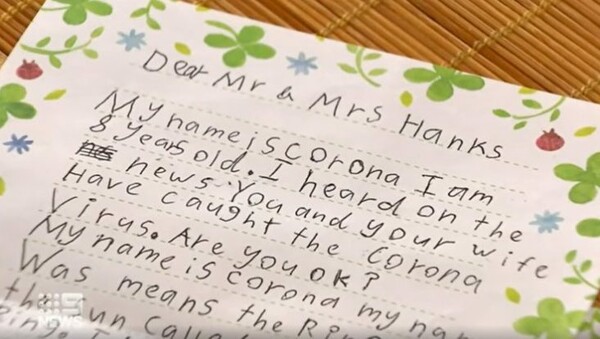 Dear Mr & Mrs Hanks
My name is corona I am
8 years old. I heard on the
news. You and your wife
Have caught the corona
Virus. Are you OK?
My name is corona my nam
Was means the Rin
the un calle
9 NEWS